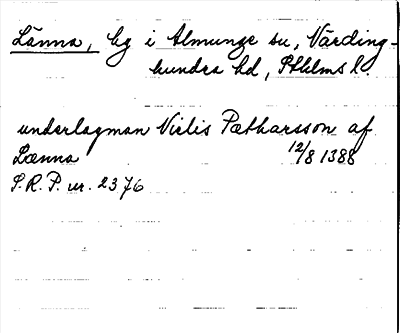 Länna, by i Almunge sn, Närding-
hundra hd, Sthlms l.
underlagman Niclis Pætharsson af
Lænna 12/8 1388
S.R.P. nr. 2376